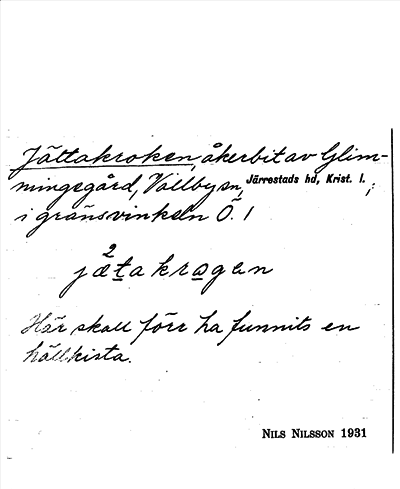 Jättakroken, åkerbit av Glim-
mingegård, Vallby sn, Järrestads hd, Krist. l.;
i gränsvinkeln Ö. 1
2
jætakrogan
Här skall förr ha funnits en
hällkista.
NILS NILSSON 1931